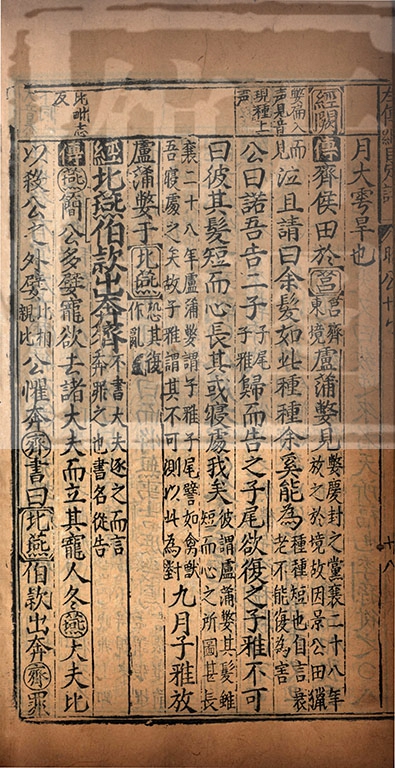 月大雩旱也
嫳偏入
聲見音
現種上
聲
經闕傳齊侯田於莒莒齊東境盧蒲嫳見嫳慶封之黨襄二十八年放之於境故因景公田獵
而泣且請曰余髮如此種種余奚能為種種短也自言衰老不能復為害
公曰諾吾告二子子尾子雅歸而告之子尾欲復之子雅不可
曰彼其髮短而心長其或寢處我矣彼謂盧蒲嫳其髮雖短而心之所圖甚長
襄二十八年盧蒲嫳謂子雅子尾譬如禽獸吾寢處之矣故子雅謂其不可測以此為對九月子雅放
盧蒲嫳于北燕恐其復作亂
經北燕伯款出奔齊不書大夫逐之而言奔罪之也書名從告
比毗志
反
傳燕簡公多嬖寵欲去諸大夫而立其寵人冬燕大夫比
以殺公之外嬖比相親比公懼奔齊書曰北燕伯款出奔齊罪